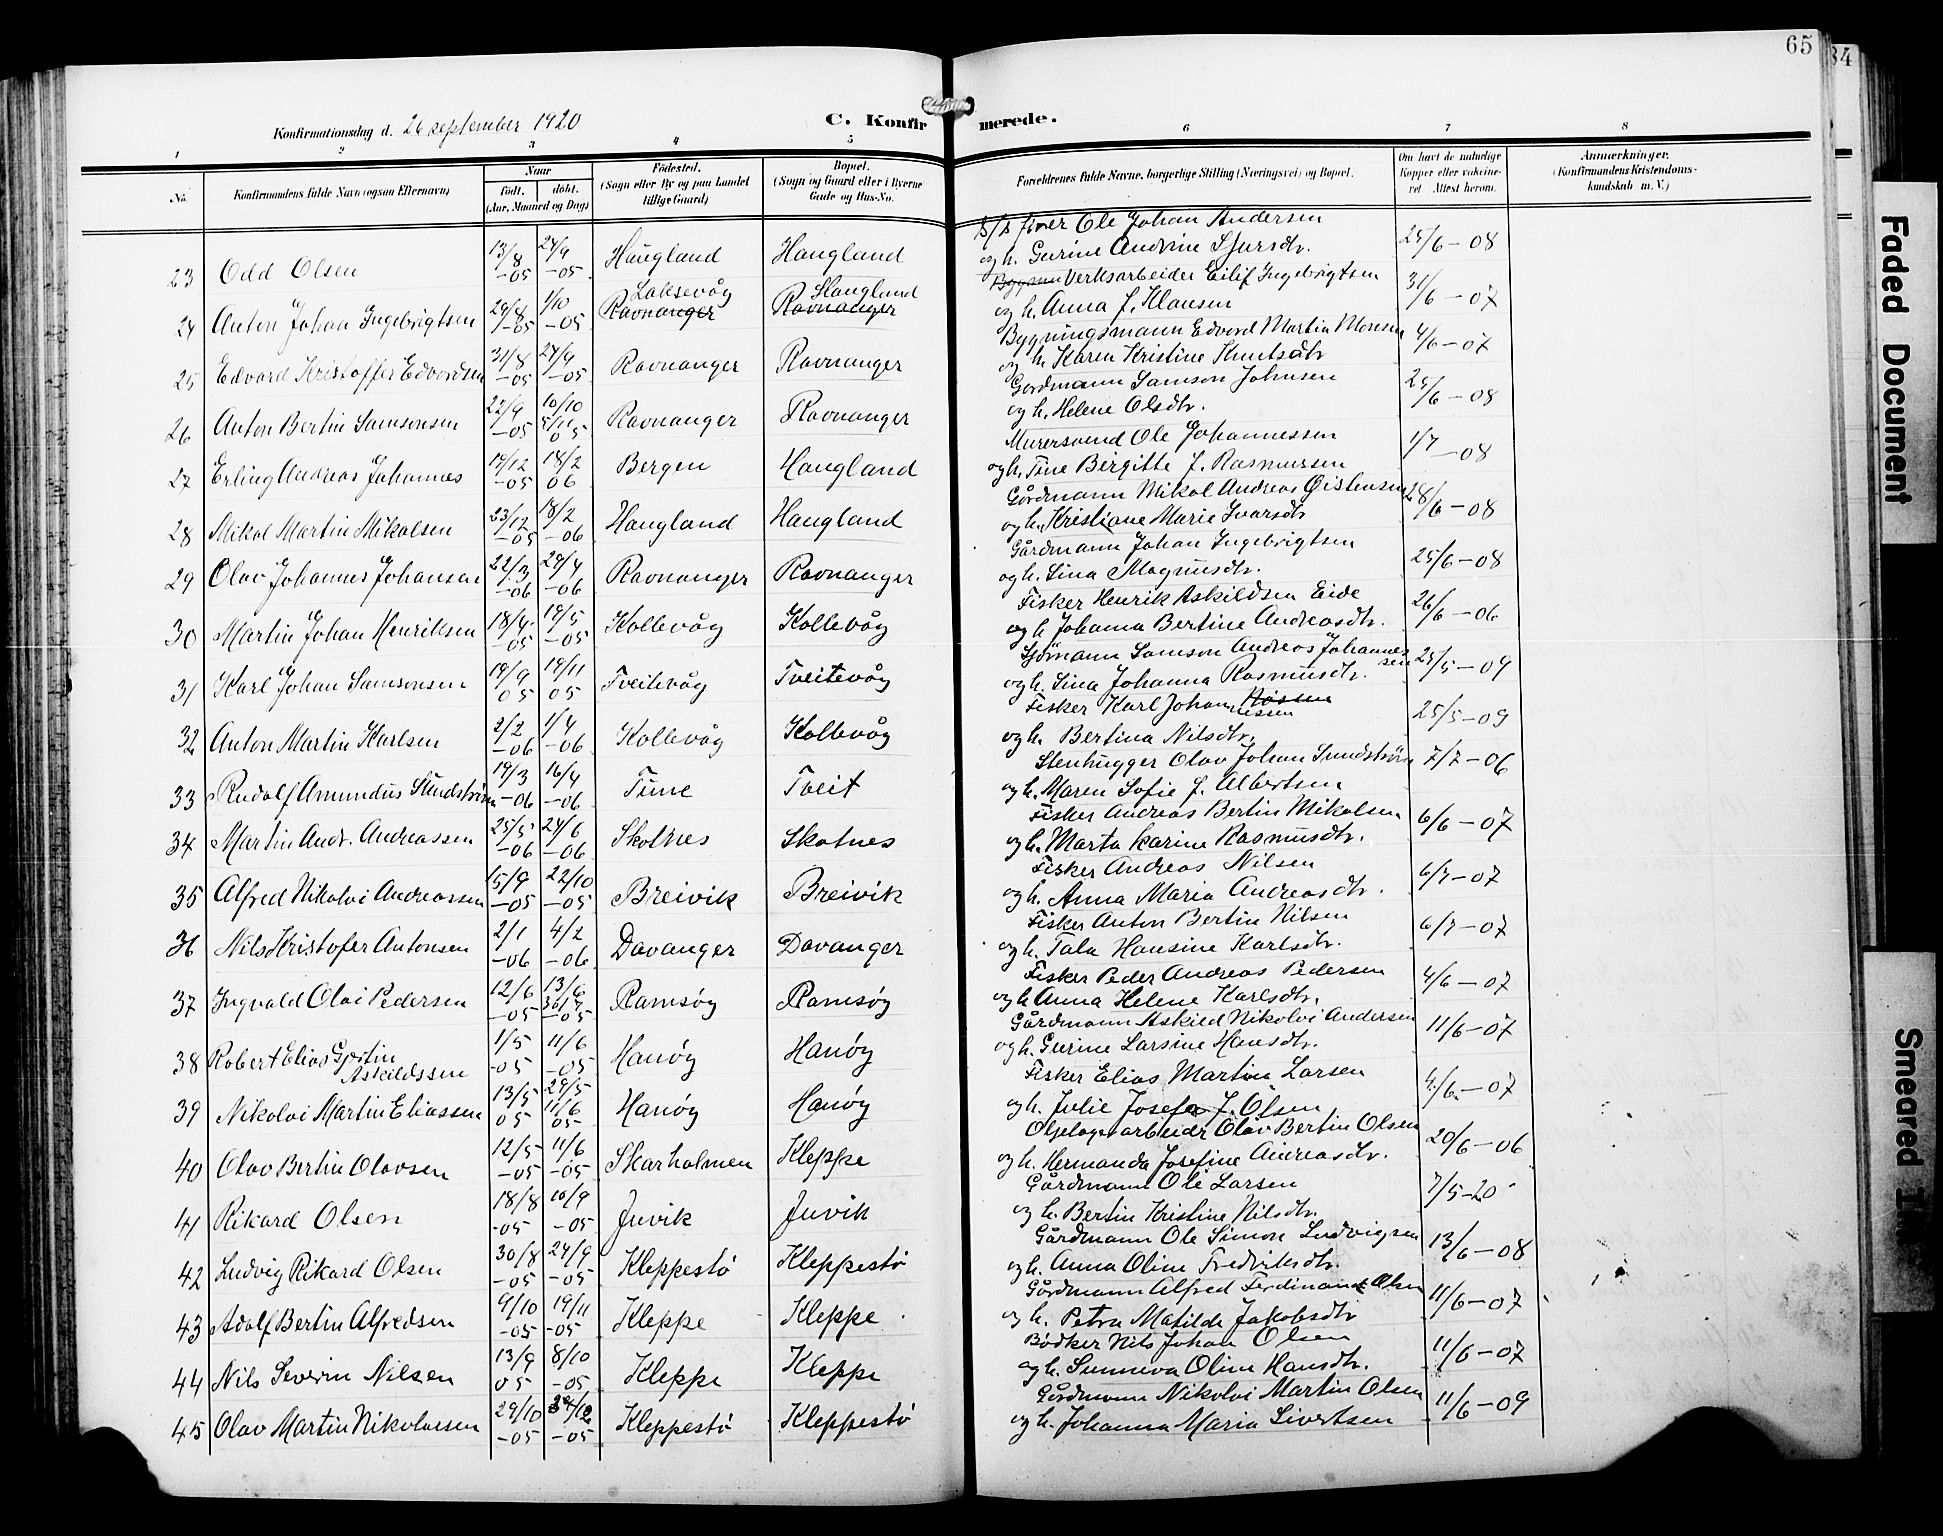 65
84
Faded Document
Smeared Ink
Konfirmationsdag d. 26 september 1920
C. Konfirmerede.
1 2 3 4 5 6 7 8
No.
Konfirmandens fulde Navn (ogsaa Efternavn)
Naar
født. døbt.
(Aar, Maaned og Dag)
Fødested.
(Sogn eller By og paa Landet
tillige Gaard)
Bopæl.
(Sogn og Gaard eller i Byerne
Gade og Hus-No.
Forældrenes fulde Navne, borgerlige Stilling (Næringsvei) og Bopæl.
Om havt de naturlige
Kopper eller vaccine-
ret Attest herom.
Anmærkninger.
(Konfirmandens Kristendoms-
kundskab m. V.)
23 Odd Olsen 13/8 -05 24/9 -05 Haugland Haugland D/S fører Ole Johan Andersen
og h. Gurine Andrine Sjursdtr. 25/6-08
24 Anton Johan Ingebrigtsen 29/8 -05 1/10 -05 Laksevåg Ravnanger Haugland Ravnanger Verksarbeider Eilif Ingebrigtsen
og h. Anna f. Klausen 31/6-07
25 Edvard Kristoffer Edvardsen 31/8 -05 24/9 -05 Ravnanger Ravnanger Bygningsmann Edvard Martin Monsen
og h. Karen Kristine Knutsdtr 4/6-07
26 Anton Bertin Samsonsen 22/9 -05 10/10 5/11 05 Ravnanger Ravnanger Gårdmann Samson Johnsen
og h. Helene Olsdtr. 25/6-08
27 Erling Andreas Johannes 19/12 -05 18/2 06 Bergen Haugland Murersvend Ole Johannessen
og h. Tine Birgitte f. Rasmussen 1/7-08
28 Mikal Martin Mikalsen 23/12 -05 18/2 -06 Haugland Haugland Gårdmann Mikal Andreas Øistensen
og h. Kristiane Marie Ivarsdtr 28/6-08
29 Olav Johannes Johansen 22/3 -06 29/4 -06 Ravnanger Ravnanger Gårdmann Johan Ingebrigtsen
og h. Lina Magnusdtr. 25/6-08
30 Martin Johan Henriksen 18/4 -05 19/5 -05 Kollevåg Kollevåg Fisker Henrik Askildsen Eide
og h Johanna Bertine Andreasdtr. 26/6-06
31 Karl Johan Samsonsen 19/9 05 19/11 05 Tveitevåg Tveitevåg Sjømann Samson Andreas Johannessen
og h. Lina Johanna Rasmusdtr. 25/5-09
32 Anton Martin Karlsen 2/2 -06 1/4 -06 Kollevåg Kollevåg Fisker Karl Johannessen
og h. Bertina Nilsdtr. 25/5-09
33 Rudolf Amundus Sundstrøm 19/3 -06 16/4 -06 Time Tveit Stenhugger Olav Johan Sundstrøm
og h. Maren Sofie f. Albertsen 7/7-06
34 Martin Andr. Andreassen 25/5 -06 24/6 -06 Skotnes Skotnes Fisker Andreas Bertin Mikalsen
og h. Marta Karine Rasmusdtr. 6/6-07
35 Alfred Nikolai Andreassen 15/9 -05 22/10 -05 Breivik Breivik Fisker Andreas Nilsen
og h. Anna Maria Andreasdtr. 6/7-07
36 Nils Kristofer Antonsen 2/1 -06 4/2 -06 Davanger Davanger Fisker Anton Bertin Nilsen
og h. Tala Hansine Karlsdtr. 6/7-07
37 Ingvald Olai Pedersen 12/6 -05 13/6 30/7 -05 Ramsøy Ramsøy Fisker Peder Andreas Pedersen
og h Anna Helene Karlsdtr. 4/6-07
38 Robert Elias Gjertin Askildssen 1/5 -05 11/6 -05 Hanøy Hanøy Gårdmann Askild Nikolai Andersen
og h. Gurine Larsine Hansdtr. 11/6-07
39 Nikolai Martin Eliassen 13/5 05 29/5 11/6 05- Hanøy Hanøy Fisker Elias Martin Larsen
og h. Julie Josefa f. Olsen 4/6-07
40 Olav Bertin Olavsen 12/5 -05 11/6 -05 Skarholmen Kleppe Oljelagerarbeidr Olav Bertin Olsen
og h. Hermanda Josefine Andreasdtr. 20/6-06
41 Rikard Olsen 18/8 -05 10/9 -05 Juvik Juvik Gårdmann Ole Larsen
og h. Bertin Kristine Nilsdtr. 7/5-20
42 Ludvig Rikard Olsen 30/8 -05 24/9 -05 Kleppestø Kleppestø Gårdmann Ole Simon Ludvigsen
og h. Anna Oline Fredriksdtr. 13/6-08
43 Adolf Bertin Alfredsen 9/10 -05 19/11 -05 Kleppe Kleppe Gårdmann Alfred Ferdinand Olsen
og h. Petra Matilde Jakobsdtr 11/6-07
44 Nils Severin Nilsen 13/9 05 8/10 -05 Kleppe Kleppe Bødker Nils Johan Olsen
og h. Sunneva Oline Hansdtr. 11/6-07
45 Olav Martin Nikolaisen 29/10 -05 /12 -05 Kleppestø Kleppestø Gårdmann Nikolai Martin Olsen
og h. Johanna Maria Sivertsen 11/6-09